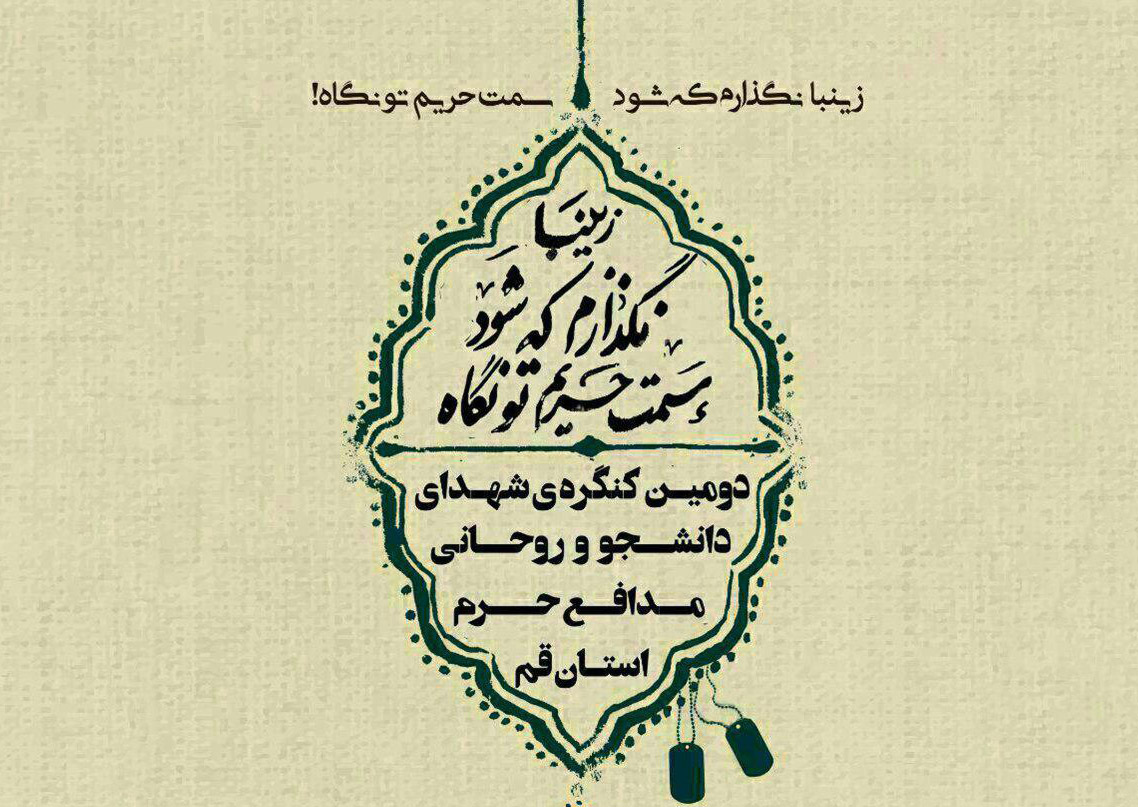 زینبا نگذارم که شود سمت حریم تو نگاه!
زینبا
نگذارم که شود
سمت حریم تو نگاه
دومین کنگره‌ی شهدای
دانشجو و روحانی
مدافع حرم
استان قم